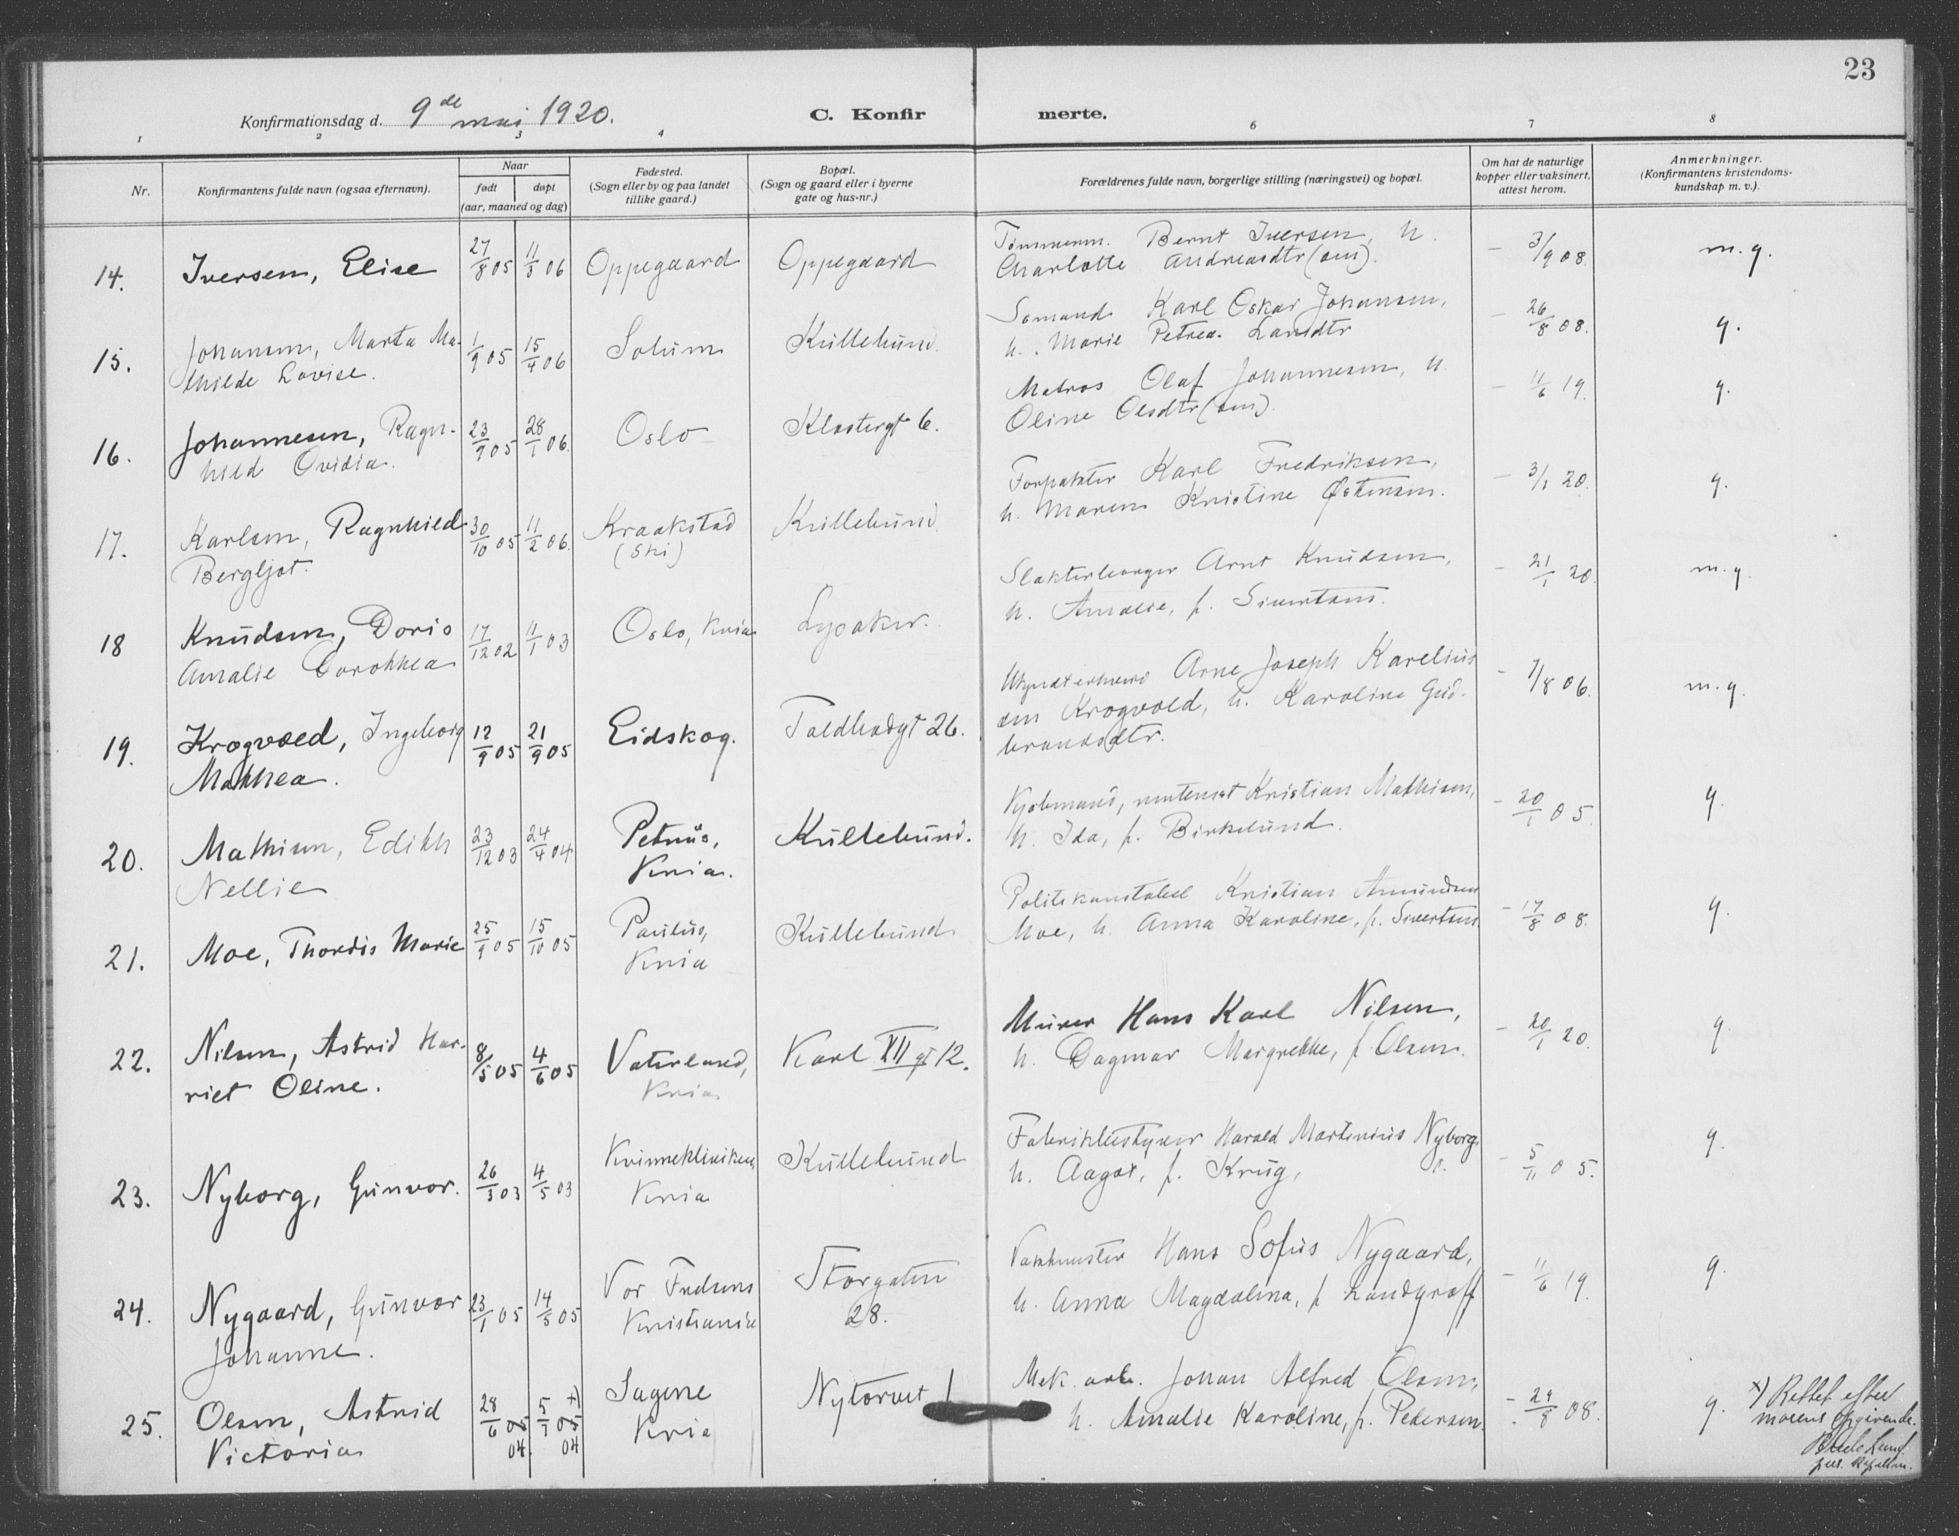 23
Konfirmationsdag d. 9de mai 1920.
C. Konfirmerte.
1 2 3 4 6 7 8
Nr.
Konfirmantens fulde navn (ogsaa efternavn).
Naar
født
døpt
(aar, maaned og dag)
Fødested.
(Sogn eller by og paa landet
tillike gaard.)
Bopæl.
(Sogn og gaard eller i byerne
gate og hus-nr.)
Forældrenes fulde navn, borgerlige stilling (næringsvei) og bopæl.
Om hat de naturlige
kopper eller vaksinert,
attest herom.
Anmerkninger.
(Konfirmantens kristendoms-
kundskap m. v.).
14. Iversen, Elise 27/8 05 11/3 06 Oppegaard Oppegaard
Tømmerm. Bernt Iversen, h.
Charlotte Andreasdtr
- 3/9 08. m. g.
15. Johansen, Marta Ma-
thilde Lovise. 1/9 05 15/4 06 Solum Kullebund.
Sømand Karl Oskar Johansen,
h. Marie Petrea Larsdtr
- 26/8 08. g.
16. Johannesen, Ragn-
hild Ovidia. 23/9 05 28/1 06 Oslo Klostergt 6.
Matros Olaf Johannesen, h.
Oline Olsdtr
- 11/6 19. g.
17. Karlsen, Ragnhild
Bergljot. 30/10 05 11/2 06 Kraakstad
(Ski) Kullebund.
Forpakter Karl Fredriksen,
h. Maren Kristine Østensen.
- 3/1 20. g.
18 Knudsen, Doris
Amalie Dorothea 17/12 02 11/1 03 Oslo, Kria Lysaker.
Arnt Knudsen,
h. Amalie, f. Sivertsen.
- 21/1 20. m. g.
19. Krogvold, Ingeborg
Mathea. 12/9 05 21/9 05 Eidskog. Toldbodgt 26.
Arne Joseph Karelius
Krogvold, h. Karoline Gud-
brandsdtr.
- 7/8 06. m. g.
20. Mathisen, Edith
Nellie 23/12 03 24/4 04 Petrus,
Kria. Kullebund.
Kjøbmand, rentenist Kristian Mathisen,
h. Ida, f. Birkelund.
- 20/1 05. g.
21. Moe, Thordis Marie 25/9 05 15/10 05 Paulus,
Kria Kullebund
Politikonstabel Kristian Amundsen
Moe, h. Anna Karoline, f. Sivertsen.
- 17/8 08. g.
22. Nilsen, Astrid Har-
riet Oline. 8/5 05 4/6 05 Vaterland,
Kria. Karl XII gt 12.
Murer Hans Karl Nilsen,
h. Dagmar Margrethe, f. Olsen.
- 20/1 20. g
23. Nyborg, Gunvor. 26/3 03 4/5 03 Kvinneklinikken,
Kria Kullebund
Fabrikbestyrer Harald Martinius Nyborg
h. Aagot, f. Krug,
- 5/11 05. g.
24. Nygaard, Gunvor
Johanne. 23/1 05 14/5 05 Vor Frelsers
Kristiania Storgaten
28.
Vaktmester Hans Sofus Nygaard,
h. Anna Magdalina, f Landgraff
- 11/6 19. g.
25. Olsen, Astrid
Victoria 28/6 05
04. x) 5/7 05
04 Sagene
Kria Nytorvet 1
Mek. arb. Johan Alfred Olsen,
h. Amalie Karoline, f. Pedersen.
- 29/8 08. g.
x) Rettet efter
morens opgivende.